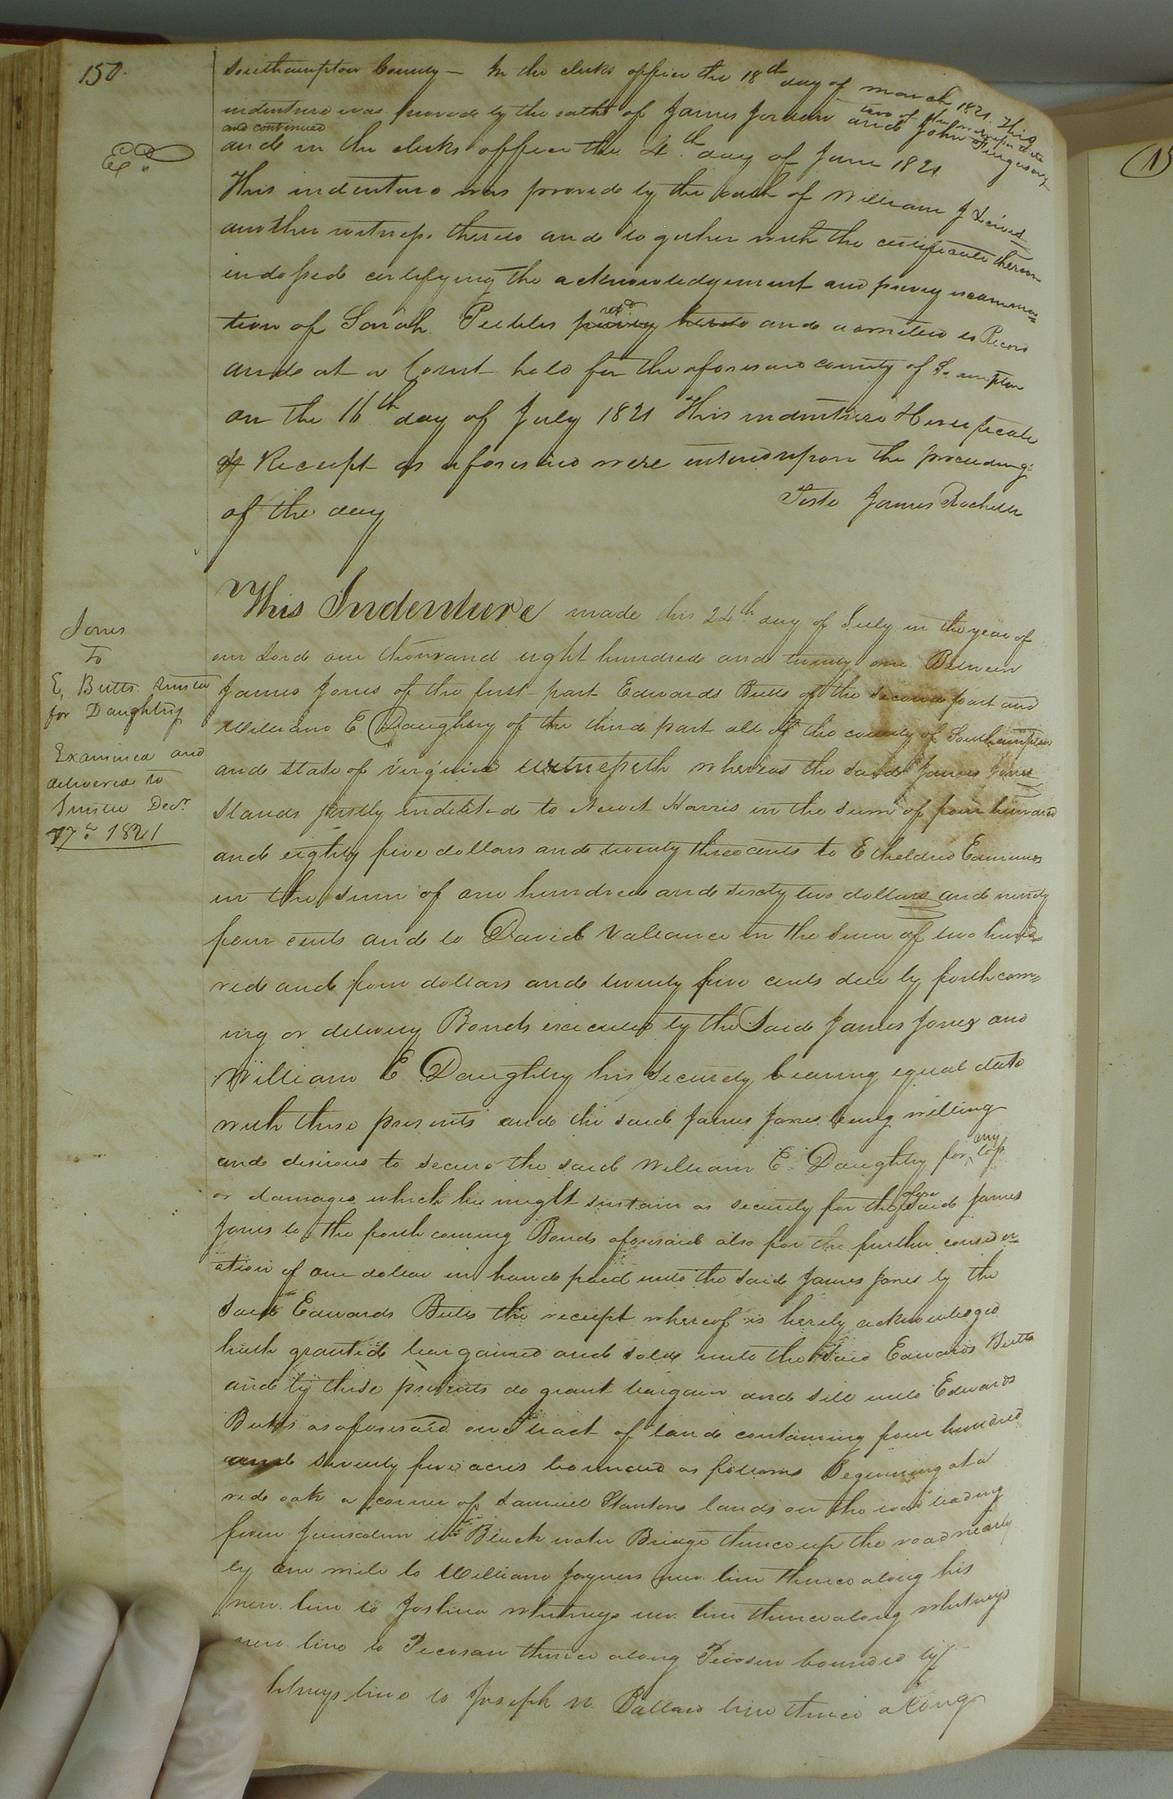 150.
Southampton County — In the clerks office the 18th day of march 1821. This
indenture was proved by the oaths of James Jordan and John Ferguson
two of the
and continued
and in the clerks office the 4th day of June 1821
This indenture was proved by the oath of William J
another witness thereto and together with the certificate thereon
indorsed certifying the acknowledgement and privey examina=
tion of Sarah Peebles and admitted to Record
and at a Court held for the aforesaid county of S. ampton
on the 16th day of July 1821 This indenture & Certificate
& Receipt as aforesaid were entered upon the proceedings
of the day
Teste James Rochelle
Jones
To
E, Butts Trustee
for Daughtry
Examined and
delivered to
Trustee Decr.
17th 1821
This Indenture made this 24th day of July in the year of
our Lord one thousand eight hundred and twenty one Between
James Jones of the first part Edwards Butts of the second part and
William E Daughtry of the third part all of the county of Southampton
and state of virginia witnesseth whereas the said James Jones
Stands justly indebted to Newit Harris in the sum of four hundred
and eighty five dollars and twenty three cents to Etheldred Edmunds
in the sum of one hundred and sixty two dollars and ninety
four cents and to David Vallance in the sum of two hund=
red and four dollars and twenty five cents due by forthcom=
ing or delivery Bonds executed by the Said James Jones and
William E Daughtry his Security bearing equal date
with these presents and the said James Jones being willing
and desirous to secure the said William E. Daughtry for any loss
or damages which he might sustain as security for the said James
Jones to the forth coming Bonds aforesaid also for the further consider=
ation of one dollar in hand paid unto the said James Jones by the
said Edwards Butts the receipt whereof is hereby acknowledged
hath granted bargained and sold unto the Said Edwards Butts
and by these presents do grant bargain and sell unto Edwards
Butts as aforesaid one Tract of land containing four hundred
and seventy five acres bounded as follows Beginning at a
red oak a corner of Samuel Stantons lands on the road leading
from Jerusalem to Black water Bridge thence up the road nearly
by one mile to William Joyners new line thence along his
new line to Joshua whitneys new line thence along whitneys
new line to Pecosan thence along Pecosan bounded by
hitneys line to Joseph N. Ballard line thence along